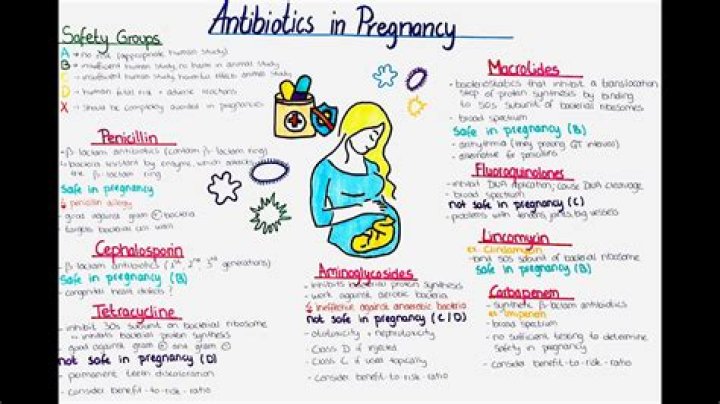 Antibiotics in Pregnancy
Safety Groups
A → no risk (appropriate human study)
B → insufficient human study, no harm in animal study
C → insufficient human study, harmful effects animal study
D → human fetal risk + adverse reactions
X → should be completely avoided in pregnancies
Penicillin
- β lactam antibiotics (contain β-lactam ring)
↳ bacteria resistant by enzyme, which
the β-lactam ring
safe in pregnancy
↯ penicillin allergy
- good against gram ⊕ bacteria
- targets bacterial cell wall
Cephalosporin
- β-lactam antibiotics (1st, 2nd, 3rd generations)
safe in pregnancy (B)
- congenital heart defects?
Tetracycline
- inhibit 30s subunit on bacterial ribosome
↳ inhibits bacterial protein synthesis
- good against gram ⊕ and gram ⊖
not safe in pregnancy (D)
- permanent teeth discoloration
- consider benefit-to-risk-ratio
Aminoglycosides
- inhibits bacterial protein synthesis
- work against aerobic bacteria
↯ ineffective against anaerobic bacteria
not safe in pregnancy (C/D)
- ototoxicity + nephrotoxicity
- Class D if injected
- Class C if used topically
- consider benefit-to-risk-ratio
Macrolides
- bacteriostatics that inhibit a translocation
step of protein synthesis by binding
to 50S subunit of bacterial ribosomes
- broad spectrum
safe in pregnancy (B)
- arrhythmia (they prolong QT interval)
- alternative for penicillins
Fluoroquinolones
- inhibit DNA replication, cause DNA cleavage
- broad spectrum
not safe in pregnancy (C)
- problems with tendons, joints, big vessels
Lincomycin
ex. Clindamycin
- bind 50s subunit of bacterial ribosome
safe in pregnancy (B)
Carbapenem
- synthetic β-lactam antibiotics
ex. Imipenem
- broad spectrum
- no sufficient testing to determine
safety in pregnancy
- consider benefit-to-risk-ratio